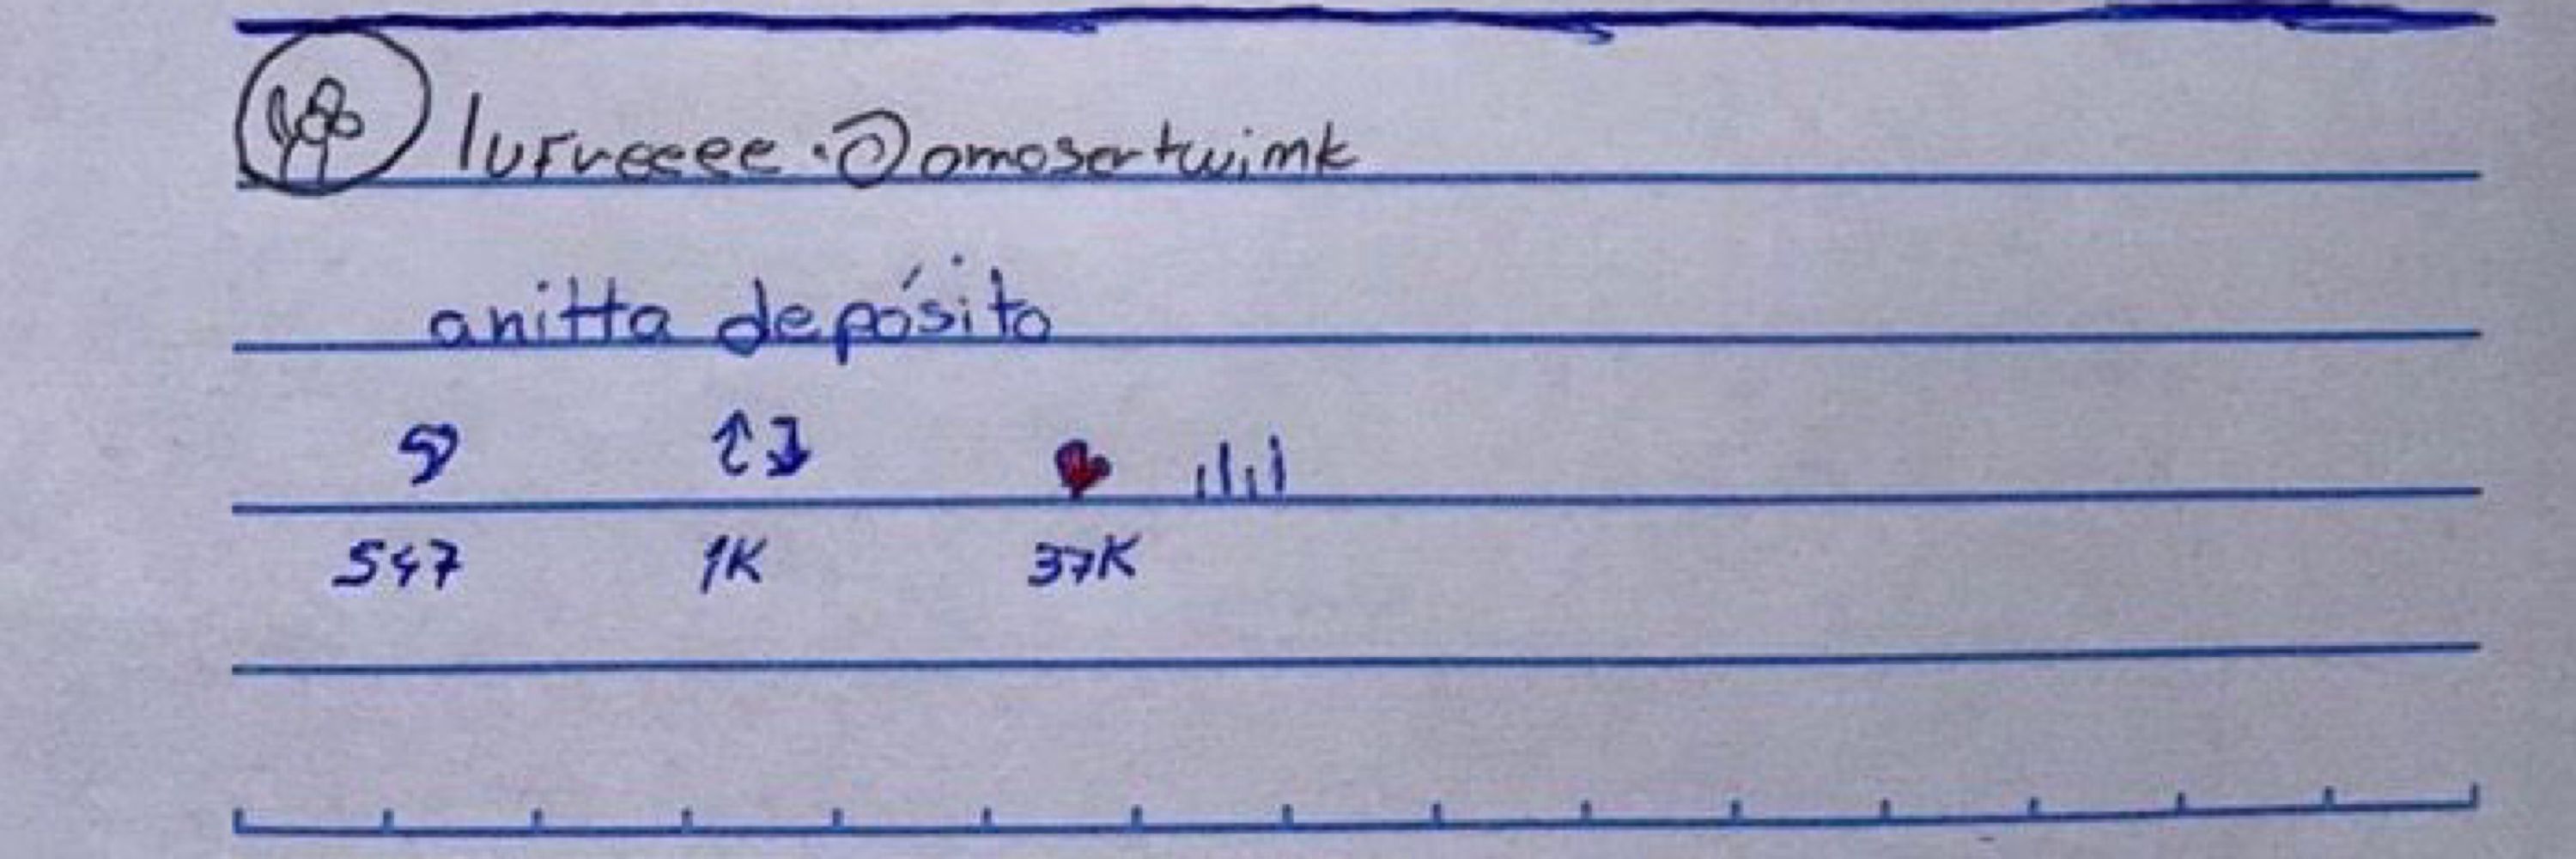 lurveeee · @omosertwimk
anitta depósito
547 1K 37K